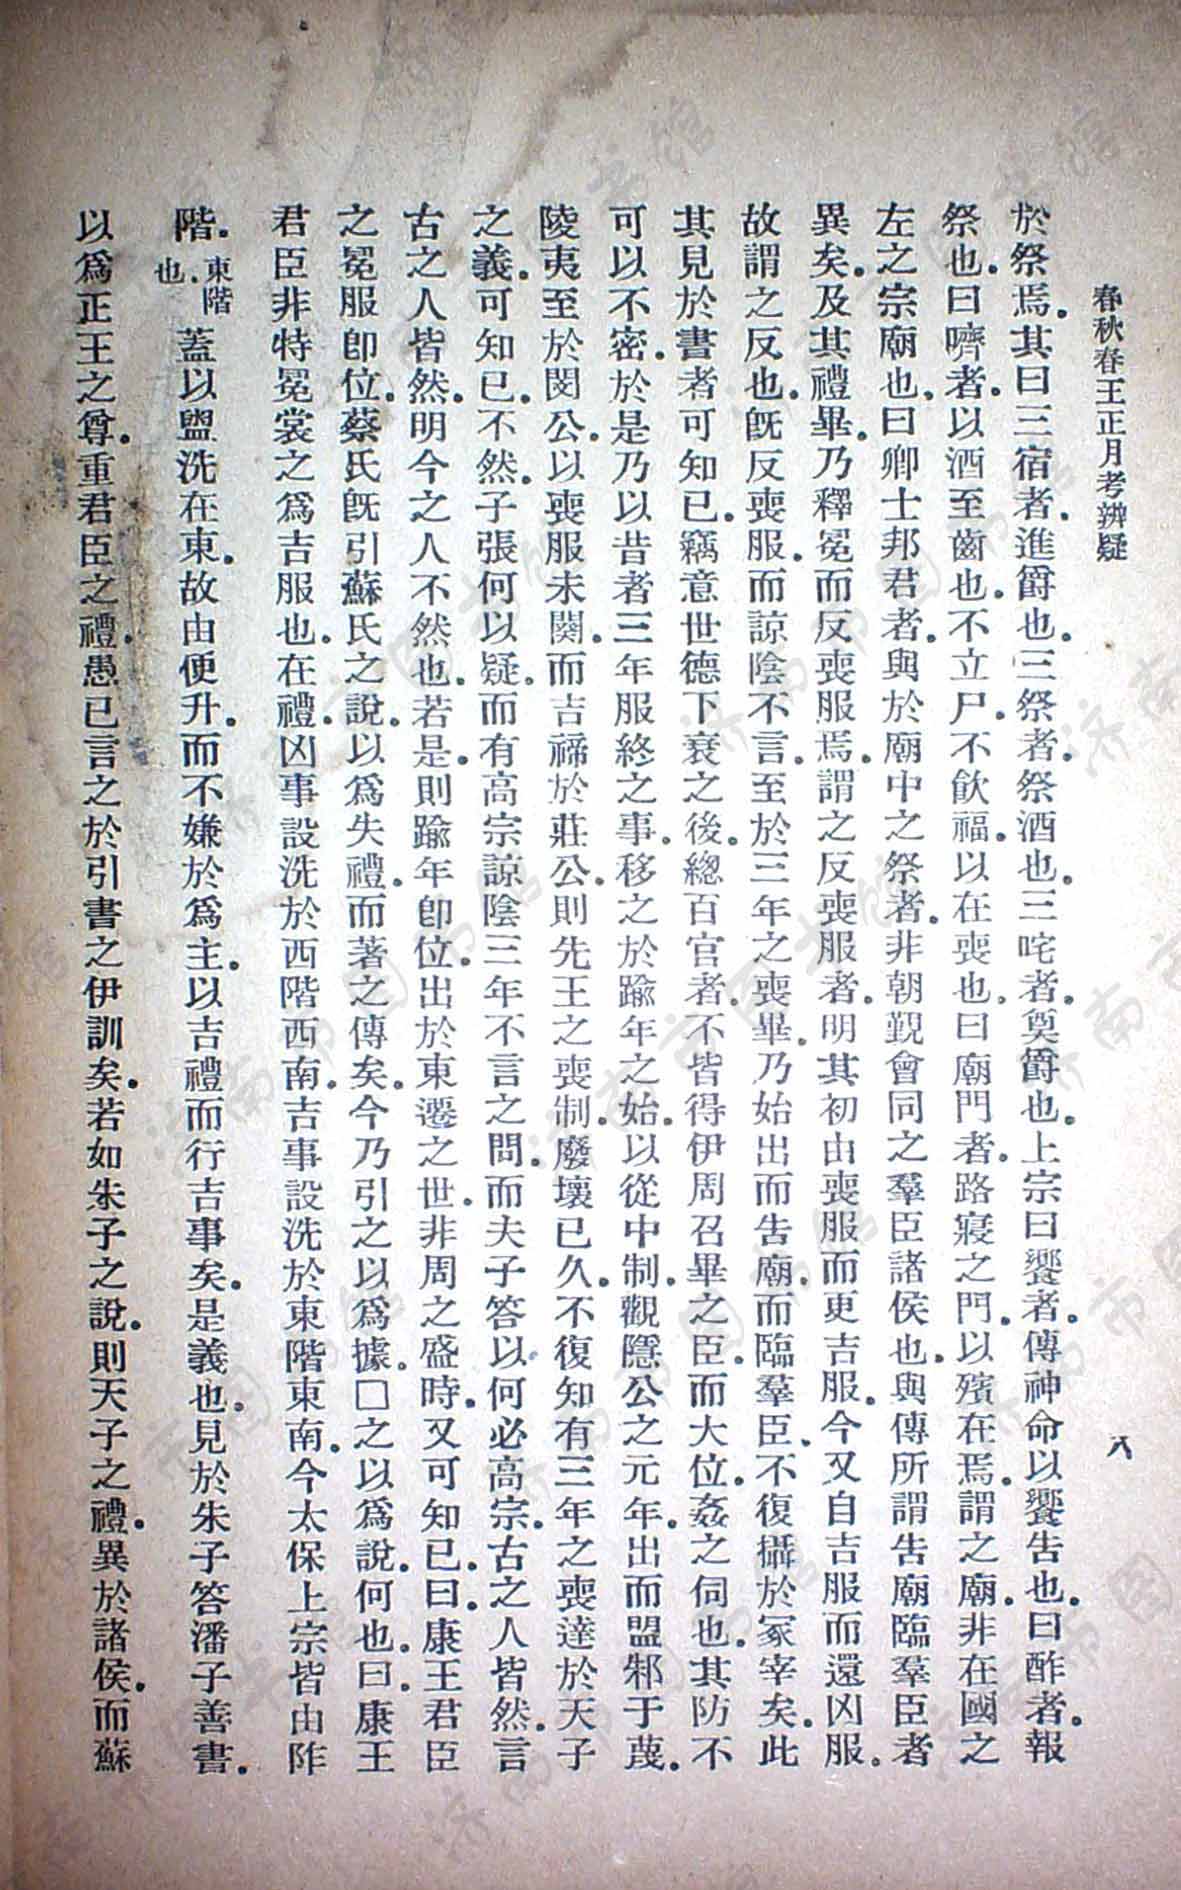 春秋春王正月考辨疑
八
於祭焉。其曰三宿者。進爵也。三祭者。祭酒也。三咤者。奠爵也。上宗曰饗者。傳神命以饗告也。曰酢者。報
祭也。曰嚌者。以酒至齒也。不立尸。不飲福。以在喪也。曰廟門者。路寢之門。以殯在焉。謂之廟。非在國之
左之宗廟也。曰卿士邦君者。與於廟中之祭者。非朝覲會同之羣臣諸侯也。與傳所謂告廟臨羣臣者
異矣。及其禮畢。乃釋冕而反喪服焉。謂之反喪服者。明其初由喪服而更吉服。今又自吉服而還凶服。
故謂之反也。旣反喪服。而諒陰不言。至於三年之喪畢。乃始出而告廟。而臨羣臣。不復攝於冢宰矣。此
其見於書者可知已。竊意世德下衰之後。總百官者。不皆得伊周召畢之臣。而大位姦之伺也。其防不
可以不密。於是乃以昔者三年服終之事。移之於踰年之始。以從中制。觀隱公之元年。出而盟邾于蔑。
陵夷至於閔公。以喪服未闋。而吉禘於莊公。則先王之喪制。廢壞已久。不復知有三年之喪達於天子
之義。可知已。不然。子張何以疑。而有高宗諒陰三年不言之問。而夫子答以何必高宗。古之人皆然。言
古之人皆然。明今之人不然也。若是。則踰年卽位。出於東遷之世。非周之盛時。又可知已。曰。康王君臣
之冕服卽位。蔡氏旣引蘇氏之說。以爲失禮。而著之傳矣。今乃引之以爲據。□之以爲說。何也。曰。康王
君臣。非特冕裳之爲吉服也。在禮。凶事設洗於西階西南。吉事設洗於東階東南。今太保上宗皆由阼
階。東階也。蓋以盥洗在東。故由便升。而不嫌於爲主。以吉禮而行吉事矣。是義也。見於朱子答潘子善書。
以爲正王之尊。重君臣之禮。愚已言之於引書之伊訓矣。若如朱子之說。則天子之禮。異於諸侯。而蘇